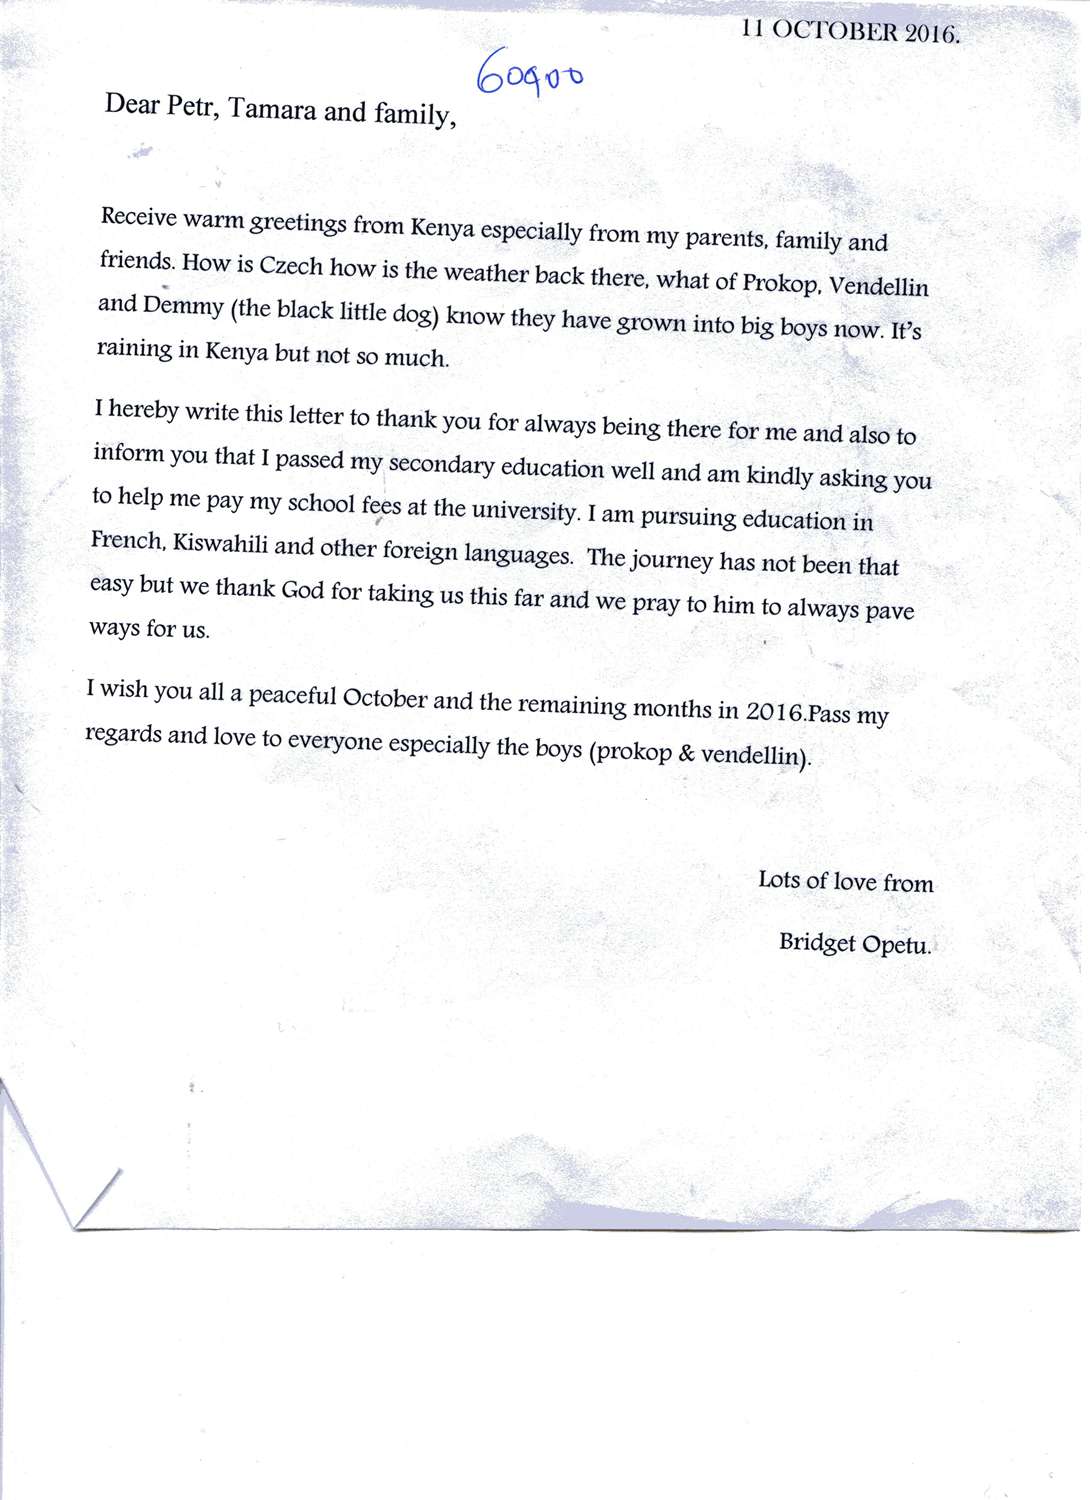 11 OCTOBER 2016.
60900
Dear Petr, Tamara and family,
Receive warm greetings from Kenya especially from my parents, family and
friends. How is Czech how is the weather back there, what of Prokop, Vendellin
and Demmy (the black little dog) know they have grown into big boys now. It's
raining in Kenya but not so much.
I hereby write this letter to thank you for always being there for me and also to
inform you that I passed my secondary education well and am kindly asking you
to help me pay my school fees at the university. I am pursuing education in
French, Kiswahili and other foreign languages.  The journey has not been that
easy but we thank God for taking us this far and we pray to him to always pave
ways for us.
I wish you all a peaceful October and the remaining months in 2016.Pass my
regards and love to everyone especially the boys (prokop & vendellin).
Lots of love from
Bridget Opetu.